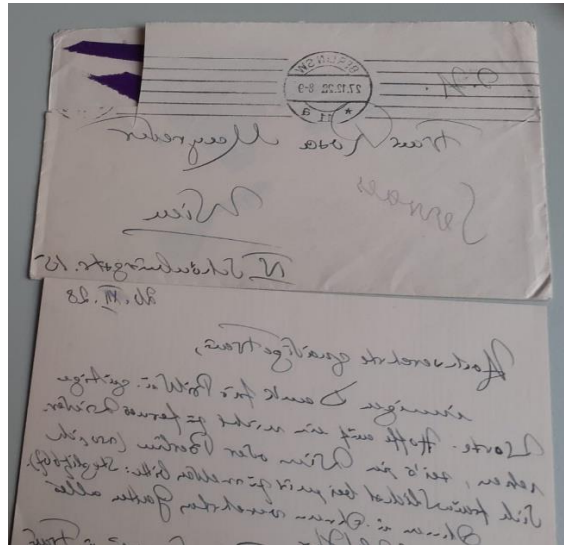 BERLIN SW
27.12.28 8-9
* 11 a
Frau Rosa Mayreder
Servaes
Wien
IV Schönburgstr. 15
26.XII.28
Hochverehrte gnädige Frau,
innigen Dank für Bild u. gütige
Worte. Hoffe auf ein nicht zu fernes Wieder-
sehen, sei's in Wien oder Berlin (wo ich
Sie freundlichst bei mir zu melden bitte:
Ihnen u. Ihrem verehrten Gatten alles